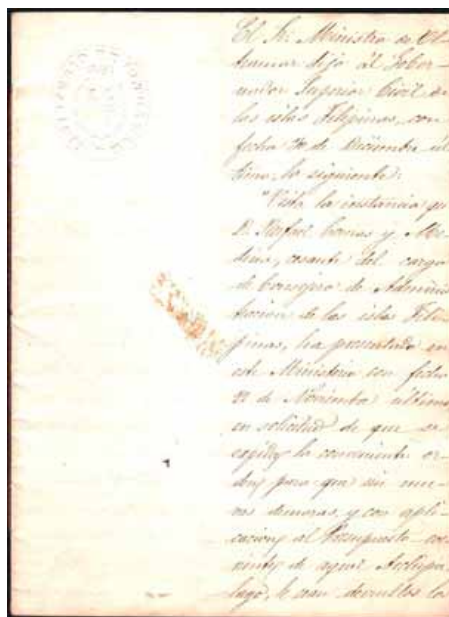 El Sr. Ministro de Ul-
tramar dijo al Gober-
nador Superior Civil de
las islas Filipinas, con
fecha de Diciembre úl-
timo, lo siguiente:
"Vista la instancia que
D. Rafael y Me-
dina, cesante del cargo
de Consejero de Adminis-
tracion de las islas Fili-
pinas, ha presentado en
este Ministerio con fecha
de Noviembre último
en solicitud de que se
expida la conveniente or-
den para que sin nue-
vas demoras, y con apli-
cacion al Presupuesto cor-
riente de aquel Archipie-
lago, le sean devueltos los